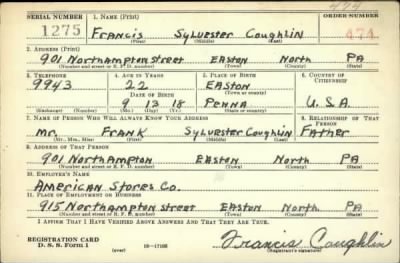 474
SERIAL NUMBER 1. NAME (Print) ORDER NUMBER
1275 Francis Sylvester Coughlin 474
(First) (Middle) (Last)
2. ADDRESS (Print)
901 Northampton Street Easton North PA
(Number and street or R. F. D. number) (Town) (County) (State)
3. TELEPHONE 4. AGE IN YEARS 5. PLACE OF BIRTH 6. COUNTRY OF CITIZENSHIP
9943 22 Easton
DATE OF BIRTH (Town or county)
9 13 18 Penna U.S.A.
(Exchange) (Number) (Mo.) (Day) (Yr.) (State or country)
7. NAME OF PERSON WHO WILL ALWAYS KNOW YOUR ADDRESS 8. RELATIONSHIP OF THAT PERSON
Mr. Frank Sylvester Coughlin Father
(Mr., Mrs., Miss) (First) (Middle) (Last)
9. ADDRESS OF THAT PERSON
901 Northampton Easton North PA
(Number and street or R. F. D. number) (Town) (County) (State)
10. EMPLOYER'S NAME
American Stores Co.
11. PLACE OF EMPLOYMENT OR BUSINESS
915 Northampton Street Easton North PA
(Number and street or R. F. D. number) (Town) (County) (State)
I AFFIRM THAT I HAVE VERIFIED ABOVE ANSWERS AND THAT THEY ARE TRUE.
REGISTRATION CARD
D. S. S. Form 1 (over) 16-17105 Francis Coughlin
(Registrant's signature)